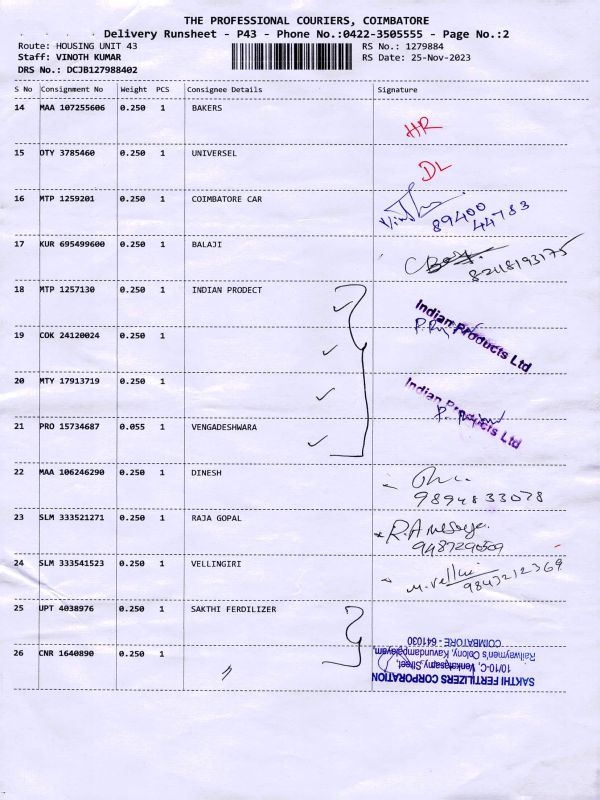 THE PROFESSIONAL COURIERS, COIMBATORE
Delivery Runsheet - P43 - Phone No.:0422-3505555 - Page No.:2
Route: HOUSING UNIT 43 RS No.: 1279884
Staff: VINOTH KUMAR RS Date: 25-Nov-2023
DRS No.: DCJB127988402
S No Consignment No Weight PCS Consignee Details Signature
14 MAA 107255606 0.250 1 BAKERS
HR
15 OTY 3785460 0.250 1 UNIVERSEL
DL
16 MTP 1259201 0.250 1 COIMBATORE CAR
89400
44783
17 KUR 695499600 0.250 1 BALAJI
8248193175
18 MTP 1257130 0.250 1 INDIAN PRODECT
Indian Products Ltd
19 COK 24120024 0.250 1
20 MTY 17913719 0.250 1
Indian Products Ltd
21 PRO 15734687 0.055 1 VENGADESHWARA
22 MAA 106246290 0.250 1 DINESH
9894833078
23 SLM 333521271 0.250 1 RAJA GOPAL
24 SLM 333541523 0.250 1 VELLINGIRI
M. Vellini 9843212369
25 UPT 4038976 0.250 1 SAKTHI FERDILIZER
26 CNR 1640890 0.250 1
SAKTHI FERTILIZERS CORPORATION
10/10-C, Venkatasamy Street,
Railwaymen's Colony, Kavundampalayam,
COIMBATORE - 641030